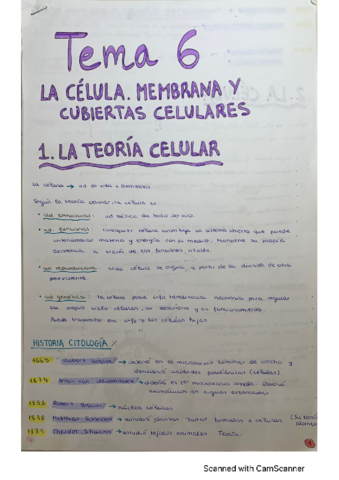 Tema 6
LA CÉLULA. MEMBRANA Y
CUBIERTAS CELULARES
1. LA TEORÍA CELULAR
La célula → ud de vida +
Según la teoría celular, la célula es:
• Ud estructural: ud básica de todo ser vivo.
• ud funcional: cualquier célula constituye un sistema abierto que puede
intercambiar materia y energía con su medio. Mantiene su propia
existencia a través de sus funciones vitales.
• ud reproductora: cada célula se origina a partir de la división de otra
preexistente.
• ud genética: la célula posee info hereditaria necesaria para regular
su propio ciclo celular, su desarrollo y su funcionamiento.
Puede transmitir esa info a las células hijas.
HISTORIA CITOLOGÍA
1665 Robert Hooke → observó en el microscopio láminas de corcho y
descubrió unidades (células)
1674 Anton van Leeuwenhoek → 1er microscopio simple.
en aguas estancadas
Robert Brown → núcleo celular
1838 Matthias Schleiden → estudió plantas
Theodor Schwann → estudió tejidos animales. Teoría
Scanned with CamScanner